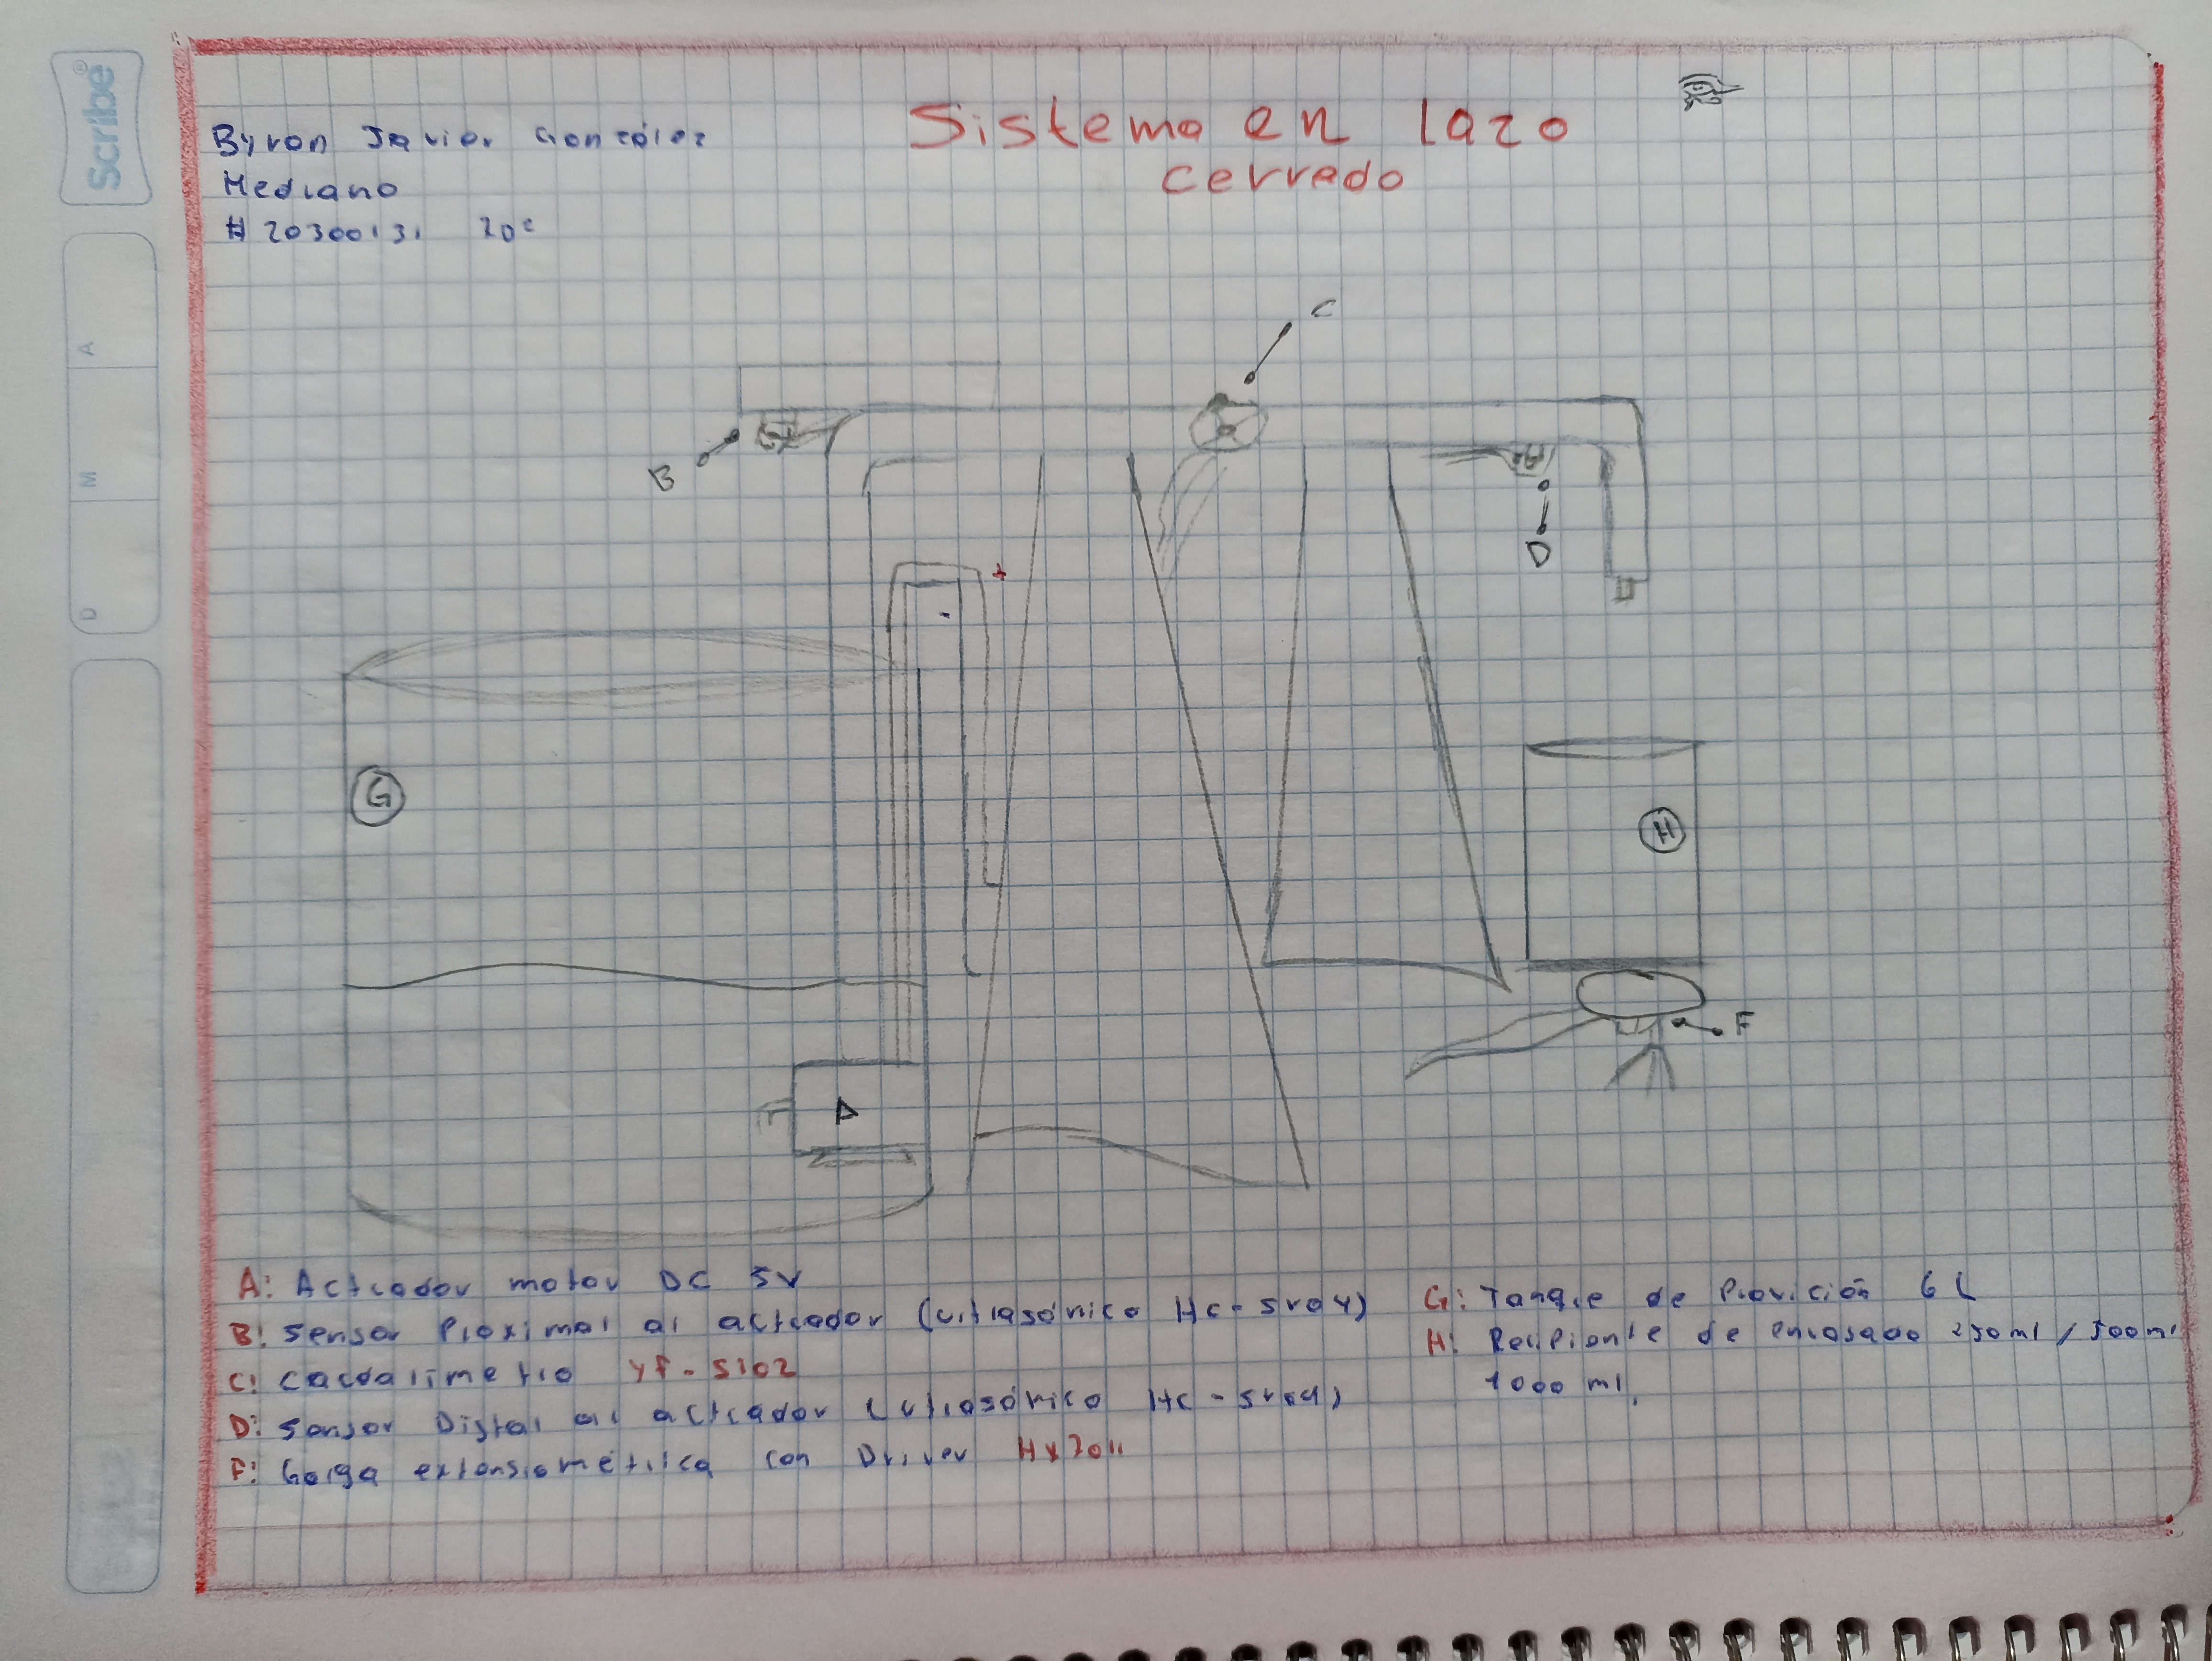 Scribe®
D M A
Byron Javier González
Mediano
# 20300131
Sistema en lazo
cerrado
C
B
D
+
-
G
H
F
A
A: Actuador motor DC 5V
B: Sensor Proximal al actuador (ultrasónico Hc-sr04)
C: Caudalímetro YF-S102
D: Sensor Distal al actuador (ultrasónico Hc-sr04)
F: Galga extensiométrica con Driver HX7011
G: Tanque de Provición 6L
H: Recipiente de envasado 250ml / 500ml
1000 ml.